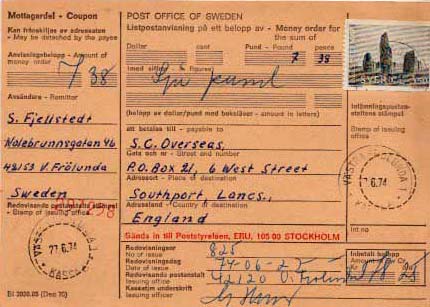 Mottagardel - Coupon
Kan frånskiljas av adressaten
- May be detached by the payee
Anvisningsbelopp - Amount of
money order
7 38
Avsändare - Remitter
S. Fjellstedt
Valebrunnsgatan 46
42153 V. Frölunda
Sweden
Redovisande postanstalts stämpel
- Stamp of issuing office
27.6.74
KASSA
Bl 2030.05 (Dec 70)
POST OFFICE OF SWEDEN
Listpostanvisning på ett belopp av - Money order for
the sum of
Dollar cent Pund - Pound pence
7 38
(med siffror - figures)
Sju pund
(belopp av dollar/pund med bokstäver - amount in letters)
att betalas till - payable to
S.C. Overseas,
Gata och nr - Street and number
P.O. Box 21, 6 West Street
Adressort - Place of destination
Southport Lancs.,
Adressland - Country of destination
England
Sänds in till Poststyrelsen, ERU, 105 00 STOCKHOLM
Redovisningsnr
No of issue
825
Redovisningsdag
Date of issue
74-06-25
Redovisande postanstalt
- issuing office
42120 V. Frölunda
Kassören underskrift
- issuing officer
Inlämningspostan-
staltens stämpel
Stamp of issuing
office
27.6.74
Int no
Inbetalt belopp
Amount